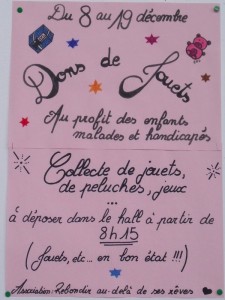 Du 8 au 19 décembre
Dons de Jouets
Au profit des enfants
malades et handicapés
Collecte de jouets,
de peluches, jeux
...
à déposer dans le hall à partir de
8h15
(Jouets, etc... en bon état !!!)
Association: Rebondir au-delà de ses rêves